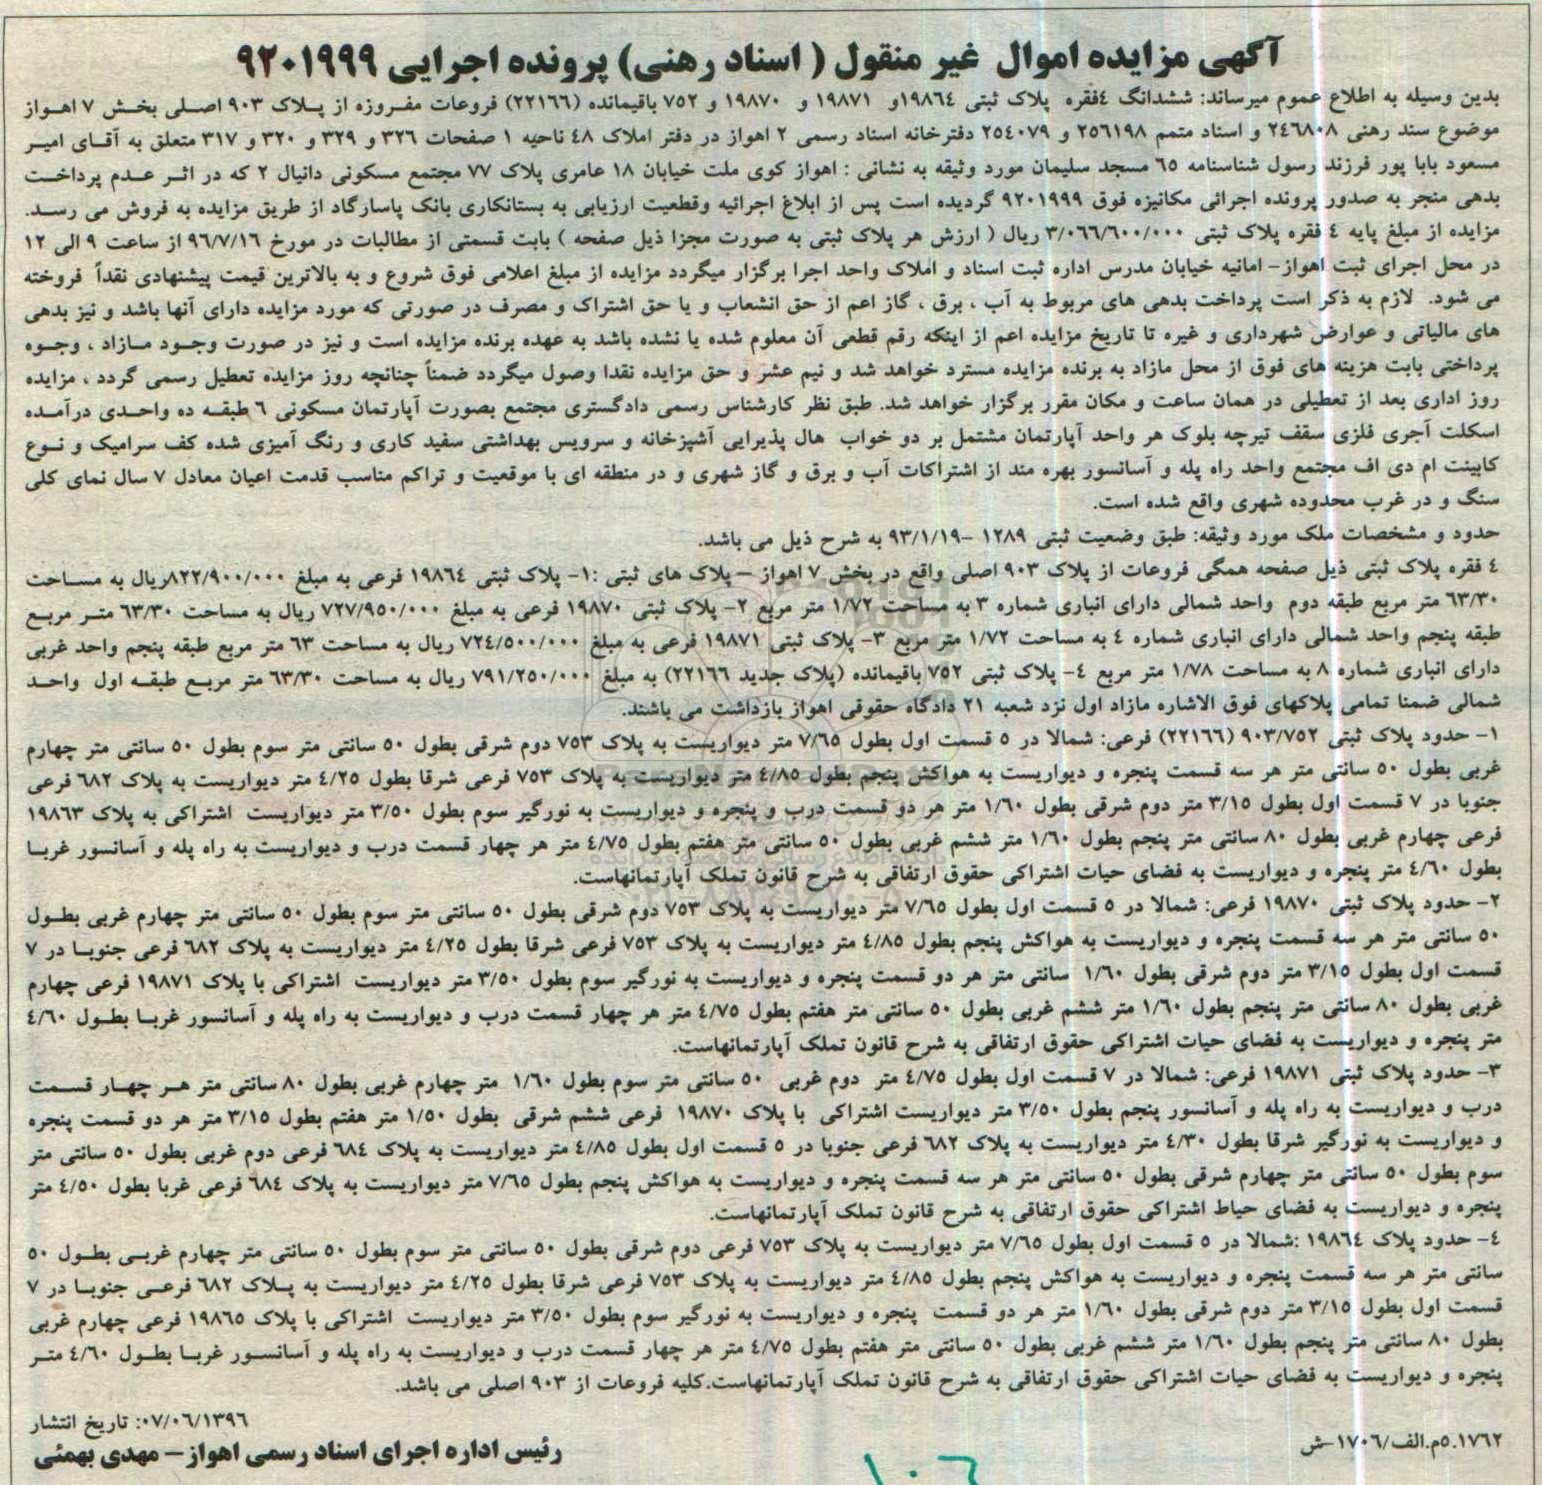 آگهی مزایده اموال غیر منقول ( اسناد رهنی) پرونده اجرایی ۹۲۰۱۹۹۹
بدین وسیله به اطلاع عموم میرساند: ششدانگ ٤فقره پلاک ثبتی ۱۹۸٦٤و ۱۹۸۷۱ و ۱۹۸۷۰ و ۷۵۲ باقیمانده (۲۲۱٦٦) فروعات مفـروزه از پــلاک ۹۰۳ اصـلی بخـش ۷ اهـواز
موضوع سند رهنی ۲٤٦۸۰۸ و اسناد متمم ۲۵٦۱۹۸ و ۲۵٤۰۷۹ دفترخانه اسناد رسمی ۲ اهواز در دفتر املاک ٤۸ ناحیه ۱ صفحات ۳۲٦ و ۳۲۹ و ۳۲۰ و ۳۱۷ متعلق به آقـای امیـر
مسعود بابا پور فرزند رسول شناسنامه ٦۵ مسجد سلیمان مورد وثیقه به نشانی : اهواز کوی ملت خیابان ۱۸ عامری پلاک ۷۷ مجتمع مسکونی دانیال ۲ که در اثـر عـدم پرداخـت
بدهی منجر به صدور پرونده اجرائی مکانیزه فوق ۹۲۰۱۹۹۹ گردیده است پس از ابلاغ اجرائیه وقطعیت ارزیابی به بستانکاری بانک پاسارگاد از طریق مزایده به فروش می رسـد.
مزایده از مبلغ پایه ٤ فقره پلاک ثبتی ۳/۰٦٦/٦۰۰/۰۰۰ ریال ( ارزش هر پلاک ثبتی به صورت مجزا ذیل صفحه ) بابت قسمتی از مطالبات در مورخ ۹٦/۷/۱٦ از ساعت ۹ الی ۱۲
در محل اجرای ثبت اهواز– امانیه خیابان مدرس اداره ثبت اسناد و املاک واحد اجرا برگزار میگردد مزایده از مبلغ اعلامی فوق شروع و به بالاترین قیمت پیشنهادی نقداً فروخته
می شود. لازم به ذکر است پرداخت بدهی های مربوط به آب ، برق ، گاز اعم از حق انشعاب و یا حق اشتراک و مصرف در صورتی که مورد مزایده دارای آنها باشد و نیز بدهی
های مالیاتی و عوارض شهرداری و غیره تا تاریخ مزایده اعم از اینکه رقم قطعی آن معلوم شده یا نشده باشد به عهده برنده مزایده است و نیز در صورت وجـود مـازاد ، وجـوه
پرداختی بابت هزینه های فوق از محل مازاد به برنده مزایده مسترد خواهد شد و نیم عشر و حق مزایده نقدا وصول میگردد ضمناً چنانچه روز مزایده تعطیل رسمی گردد ، مزایده
روز اداری بعد از تعطیلی در همان ساعت و مکان مقرر برگزار خواهد شد. طبق نظر کارشناس رسمی دادگستری مجتمع بصورت آپارتمان مسکونی ٦ طبقـه ده واحـدی درآمـده
اسکلت آجری فلزی سقف تیرچه بلوک هر واحد آپارتمان مشتمل بر دو خواب هال پذیرایی آشپزخانه و سرویس بهداشتی سفید کاری و رنگ آمیزی شده کف سرامیک و نـوع
کابینت ام دی اف مجتمع واحد راه پله و آسانسور بهره مند از اشتراکات آب و برق و گاز شهری و در منطقه ای با موقعیت و تراکم مناسب قدمت اعیان معادل ۷ سال نمای کلی
سنگ و در غرب محدوده شهری واقع شده است.
حدود و مشخصات ملک مورد وثیقه: طبق وضعیت ثبتی ۱۲۸۹ –۹۳/۱/۱۹ به شرح ذیل می باشد.
٤ فقره پلاک ثبتی ذیل صفحه همگی فروعات از پلاک ۹۰۳ اصلی واقع در بخش ۷ اهواز – پلاک های ثبتی :۱- پلاک ثبتی ۱۹۸٦٤ فرعی به مبلغ ۸۲۲/۹۰۰/۰۰۰ریال به مسـاحت
٦۳/۳۰ متر مربع طبقه دوم واحد شمالی دارای انباری شماره ۳ به مساحت ۱/۷۲ متر مربع ۲- پلاک ثبتی ۱۹۸۷۰ فرعی به مبلغ ۷۲۷/۹۵۰/۰۰۰ ریال به مساحت ٦۳/۳۰ متـر مربـع
طبقه پنجم واحد شمالی دارای انباری شماره ٤ به مساحت ۱/۷۲ متر مربع ۳- پلاک ثبتی ۱۹۸۷۱ فرعی به مبلغ ۷۲٤/۵۰۰/۰۰۰ ریال به مساحت ٦۳ متر مربع طبقه پنجم واحد غربی
دارای انباری شماره ۸ به مساحت ۱/۷۸ متر مربع ٤- پلاک ثبتی ۷۵۲ باقیمانده (پلاک جدید ۲۲۱٦٦) به مبلغ ۷۹۱/۲۵۰/۰۰۰ ریال به مساحت ٦۳/۳۰ متر مربـع طبقـه اول واحـد
شمالی ضمنا تمامی پلاکهای فوق الاشاره مازاد اول نزد شعبه ۲۱ دادگاه حقوقی اهواز بازداشت می باشند.
۱- حدود پلاک ثبتی ۹۰۳/۷۵۲ (۲۲۱٦٦) فرعی: شمالا در ۵ قسمت اول بطول ۷/٦۵ متر دیواریست به پلاک ۷۵۳ دوم شرقی بطول ۵۰ سانتی متر سوم بطول ۵۰ سانتی متر چهارم
غربی بطول ۵۰ سانتی متر هر سه قسمت پنجره و دیواریست به هواکش پنجم بطول ٤/۸۵ متر دیواریست به پلاک ۷۵۳ فرعی شرقا بطول ٤/۲۵ متر دیواریست به پلاک ٦۸۲ فرعی
جنوبا در ۷ قسمت اول بطول ۳/۱۵ متر دوم شرقی بطول ۱/٦۰ متر هر دو قسمت درب و پنجره و دیواریست به نورگیر سوم بطول ۳/۵۰ متر دیواریست اشتراکی به پلاک ۱۹۸٦۳
فرعی چهارم غربی بطول ۸۰ سانتی متر پنجم بطول ۱/٦۰ متر ششم غربی بطول ۵۰ سانتی متر هفتم بطول ٤/۷۵ متر هر چهار قسمت درب و دیواریست به راه پله و آسانسور غربـا
بطول ٤/٦۰ متر پنجره و دیواریست به فضای حیات اشتراکی حقوق ارتفاقی به شرح قانون تملک آپارتمانهاست.
۲- حدود پلاک ثبتی ۱۹۸۷۰ فرعی: شمالا در ۵ قسمت اول بطول ۷/٦۵ متر دیواریست به پلاک ۷۵۳ دوم شرقی بطول ۵۰ سانتی متر سوم بطول ۵۰ سانتی متر چهارم غربی بطـول
۵۰ سانتی متر هر سه قسمت پنجره و دیواریست به هواکش پنجم بطول ٤/۸۵ متر دیواریست به پلاک ۷۵۳ فرعی شرقا بطول ٤/۲۵ متر دیواریست به پلاک ٦۸۲ فرعی جنوبـا در ۷
قسمت اول بطول ۳/۱۵ متر دوم شرقی بطول ۱/٦۰ سانتی متر هر دو قسمت پنجره و دیواریست به نورگیر سوم بطول ۳/۵۰ متر دیواریست اشتراکی با پلاک ۱۹۸۷۱ فرعی چهارم
غربی بطول ۸۰ سانتی متر پنجم بطول ۱/٦۰ متر ششم غربی بطول ۵۰ سانتی متر هفتم بطول ٤/۷۵ متر هر چهار قسمت درب و دیواریست به راه پله و آسانسور غربـا بطـول ٤/٦۰
متر پنجره و دیواریست به فضای حیات اشتراکی حقوق ارتفاقی به شرح قانون تملک آپارتمانهاست.
۳- حدود پلاک ثبتی ۱۹۸۷۱ فرعی: شمالا در ۷ قسمت اول بطول ٤/۷۵ متر دوم غربی ۵۰ سانتی متر سوم بطول ۱/٦۰ متر چهارم غربی بطول ۸۰ سانتی متر هـر چهـار قسـمت
درب و دیواریست به راه پله و آسانسور پنجم بطول ۳/۵۰ متر دیواریست اشتراکی با پلاک ۱۹۸۷۰ فرعی ششم شرقی بطول ۱/۵۰ متر هفتم بطول ۳/۱۵ متر هر دو قسمت پنجره
و دیواریست به نورگیر شرقا بطول ٤/۳۰ متر دیواریست به پلاک ٦۸۲ فرعی جنوبا در ۵ قسمت اول بطول ٤/۸۵ متر دیواریست به پلاک ٦۸٤ فرعی دوم غربی بطول ۵۰ سانتی متر
سوم بطول ۵۰ سانتی متر چهارم شرقی بطول ۵۰ سانتی متر هر سه قسمت پنجره و دیواریست به هواکش پنجم بطول ۷/٦۵ متر دیواریست به پلاک ٦۸٤ فرعی غربا بطول ٤/۵۰ متر
پنجره و دیواریست به فضای حیاط اشتراکی حقوق ارتفاقی به شرح قانون تملک آپارتمانهاست.
٤- حدود پلاک ۱۹۸٦٤ :شمالا در ۵ قسمت اول بطول ۷/٦۵ متر دیواریست به پلاک ۷۵۳ فرعی دوم شرقی بطول ۵۰ سانتی متر سوم بطول ۵۰ سانتی متر چهارم غربـی بطـول ۵۰
سانتی متر هر سه قسمت پنجره و دیواریست به هواکش پنجم بطول ٤/۸۵ متر دیواریست به پلاک ۷۵۳ فرعی شرقا بطول ٤/۲۵ متر دیواریست به پـلاک ٦۸۲ فرعـی جنوبـا در ۷
قسمت اول بطول ۳/۱۵ متر دوم شرقی بطول ۱/٦۰ متر هر دو قسمت پنجره و دیواریست به نورگیر سوم بطول ۳/۵۰ متر دیواریست اشتراکی با پلاک ۱۹۸٦۵ فرعی چهارم غربی
بطول ۸۰ سانتی متر پنجم بطول ۱/٦۰ متر ششم غربی بطول ۵۰ سانتی متر هفتم بطول ٤/۷۵ متر هر چهار قسمت درب و دیواریست به راه پله و آسانسـور غربـا بطـول ٤/٦۰ متـر
پنجره و دیواریست به فضای حیات اشتراکی حقوق ارتفاقی به شرح قانون تملک آپارتمانهاست.کلیه فروعات از ۹۰۳ اصلی می باشد.
۰۷/۰٦/۱۳۹٦: تاریخ انتشار
۵.۱۷٦۲م.الف/۱۷۰٦–ش
رئیس اداره اجرای اسناد رسمی اهواز – مهدی بهمئی
۱۰٦